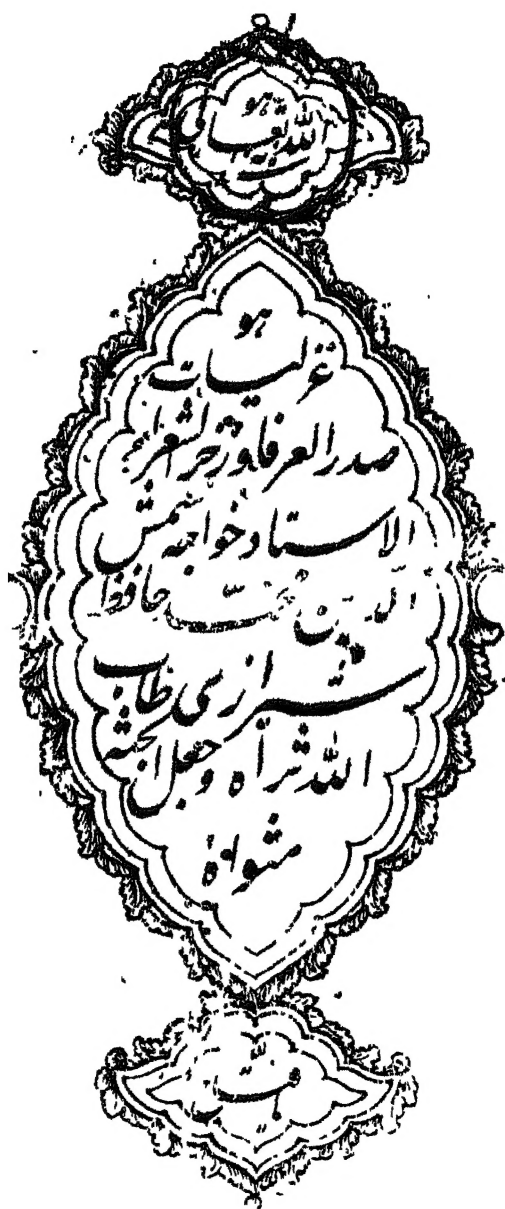 هو
الله تعالى
هو
غزلیات
صدر العرفا و فخر الشعرا
الاستاد خواجه شمس
الدین محمد حافظ
شیرازی طاب
الله ثراه و جعل الجنة
مثواه